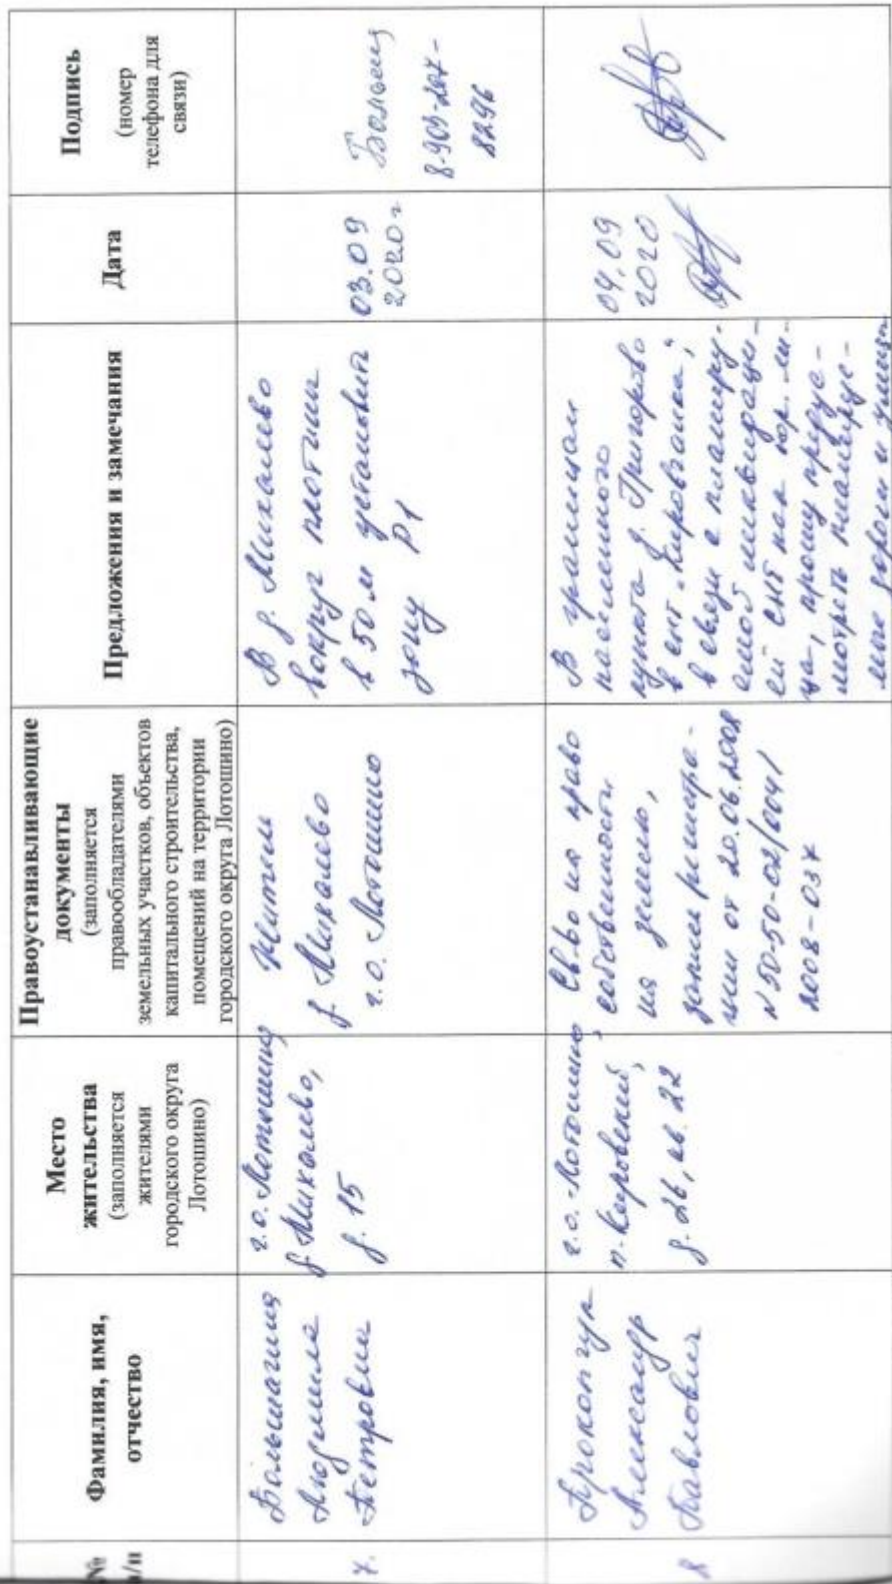 №
п/п
Фамилия, имя,
отчество
Место
жительства
(заполняется
жителями
городского округа
Лотошино)
Правоустанавливающие
документы
(заполняется
правообладателями
земельных участков, объектов
капитального строительства,
помещений на территории
городского округа Лотошино)
Предложения и замечания
Дата
Подпись
(номер
телефона для
связи)
7.
Людмила
Петровна
г.о. Лотошино
д. Михалево,
д. 15
Житель
д. Михалево
г.о. Лотошино
В д. Михалево
вокруг плотины
в 50 м установить
зону Р1
03.09
2020 г
8-903-207-
8296
8
Прокопчук
Александр
Павлович
г.о. Лотошино
п. Кировский,
д. 26, кв. 22
Св-во на право
собственности
на землю,
запись регистра-
ции от 20.06.2008
N 50-50-02/0041
2008-037
В границах
населенного
пункта д. Григорово
в снт "Кировчанка",
в связи с планиру-
емой ликвидаци-
ей СНТ как юр. ли-
ца, прошу преду-
смотреть планируе-
мые дороги и
04.09
2020